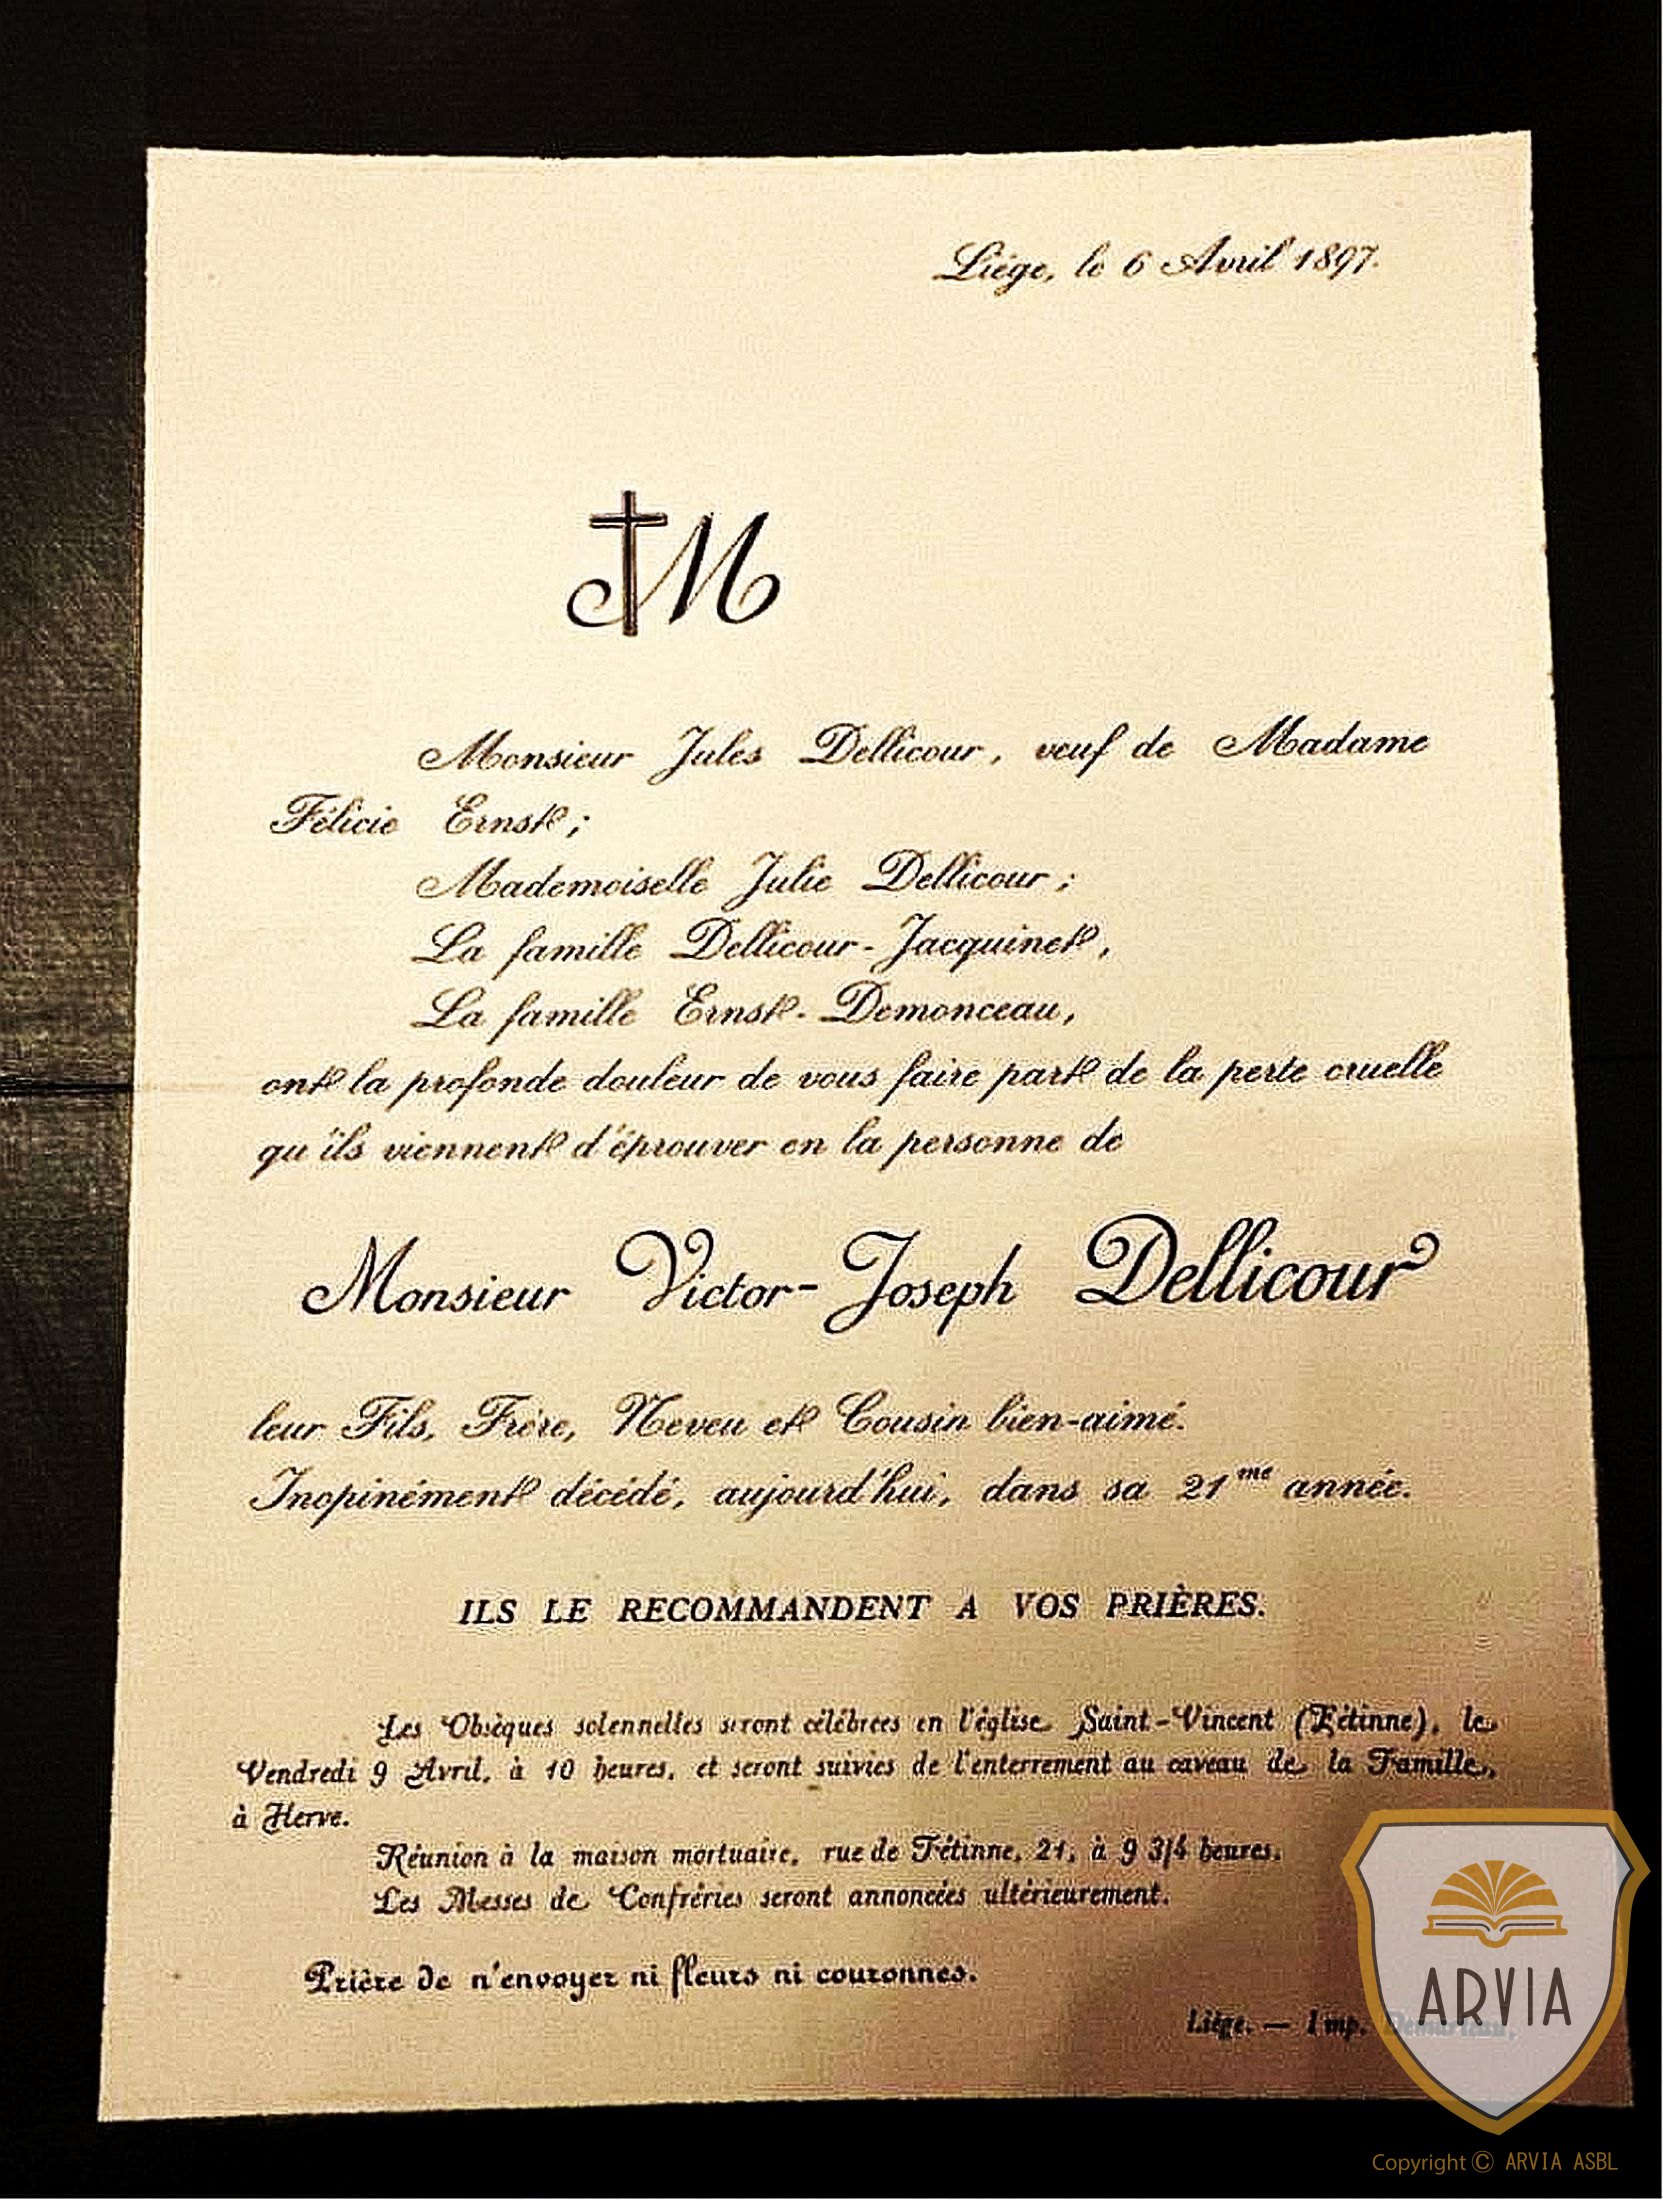 Liége, le 6 Avril 1897.
M
Monsieur Jules Dellicour, veuf de Madame
Félicie Ernst;
Mademoiselle Julie Dellicour;
La famille Dellicour-Jacquinet,
La famille Ernst-Demonceau,
ont la profonde douleur de vous faire part de la perte cruelle
qu'ils viennent d'éprouver en la personne de
Monsieur Victor-Joseph Dellicour
leur Fils, Frère, Neveu et Cousin bien-aimé.
Inopinément décédé, aujourd'hui, dans sa 21me année.
ILS LE RECOMMANDENT A VOS PRIÈRES.
Les Obsèques solennelles seront célébrées en l'église Saint-Vincent (Fétinne), le
Vendredi 9 Avril, à 10 heures, et seront suivies de l'enterrement au caveau de la Famille,
à Herve.
Réunion à la maison mortuaire, rue de Fétinne, 21, à 9 3/4 heures.
Les Messes de Confréries seront annoncées ultérieurement.
Prière de n'envoyer ni fleurs ni couronnes.
Liége. — Imp.
ARVIA
Copyright © ARVIA ASBL